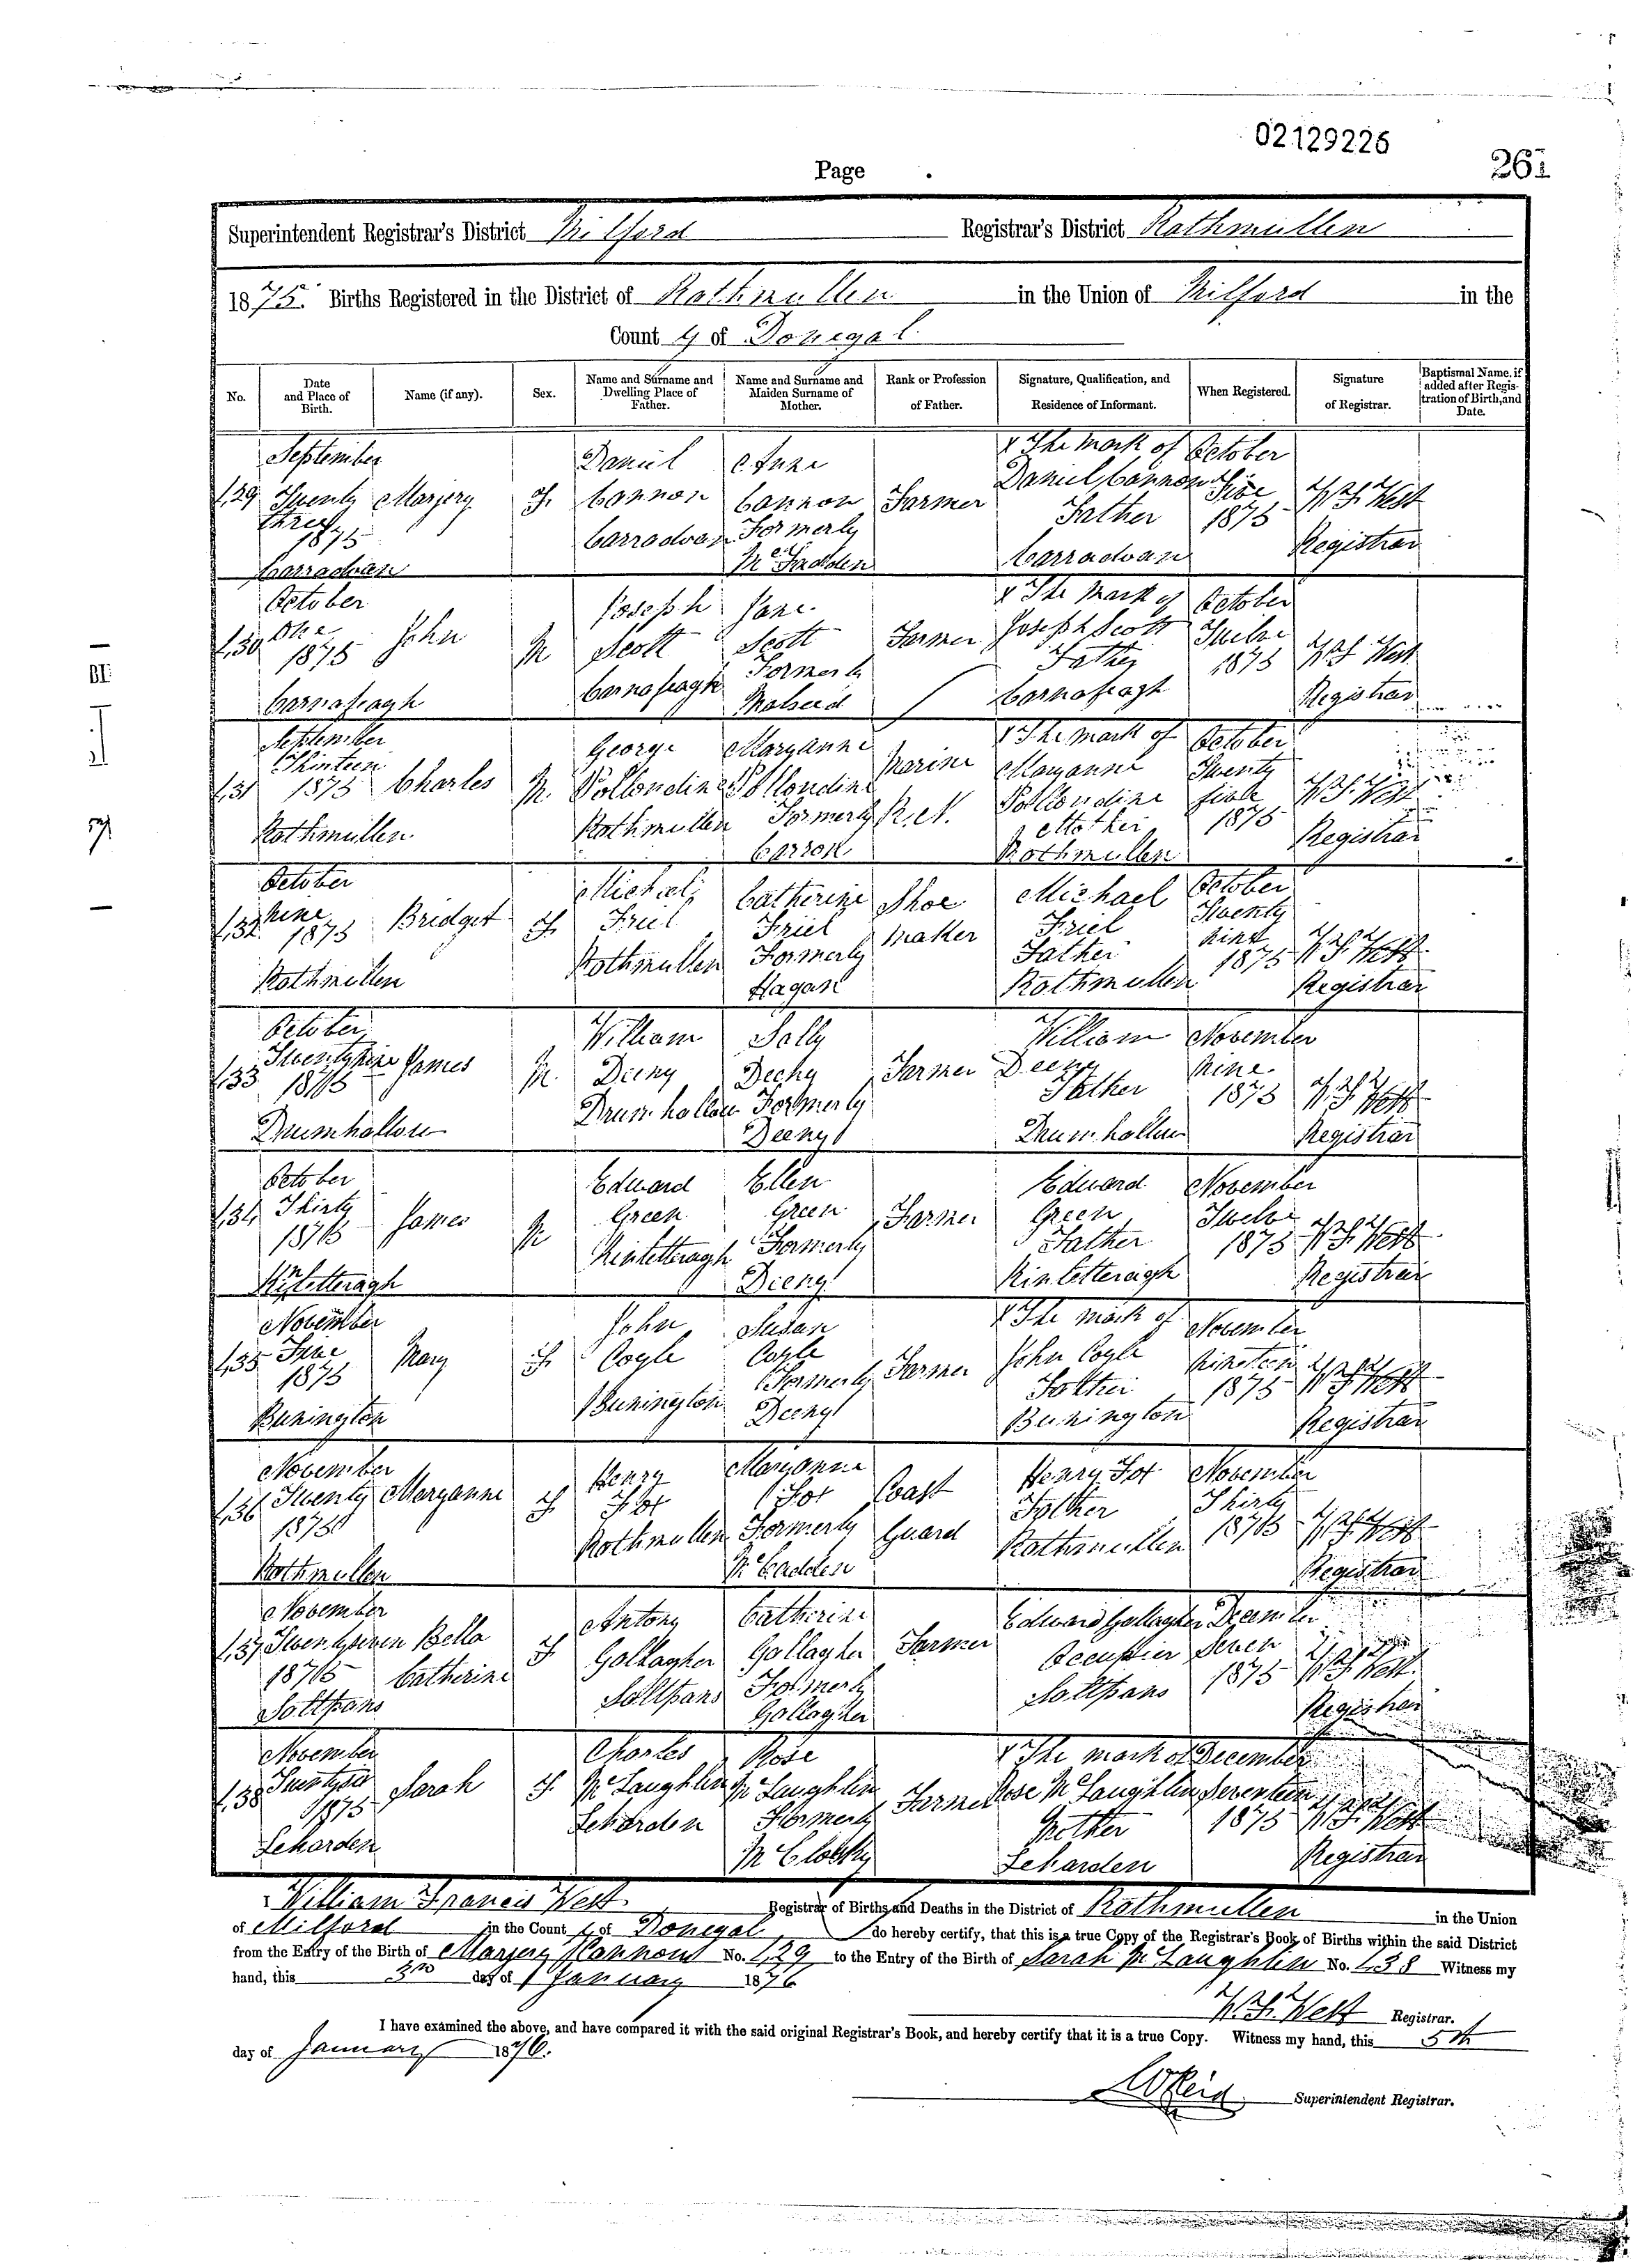 02129226
261
Page
Superintendent Registrar's District Milford Registrar's District Rathmullen
1875. Births Registered in the District of Rathmullen in the Union of Milford in the
County of Donegal.
No. Date and Place of Birth. Name (if any). Sex. Name and Surname and Dwelling Place of Father. Name and Surname and Maiden Surname of Mother. Rank or Profession of Father. Signature, Qualification, and Residence of Informant. When Registered. Signature of Registrar. Baptismal Name, if added after Registration of Birth, and Date.
129 September Twenty three 1875 Carradoan Marjery F. Daniel Cannon Carradoan Anne Cannon Formerly McFadden Farmer X The Mark of Daniel Cannon Father Carradoan October Five 1875 W.F. West Registrar
130 October One 1875 Carnafeagh John M Joseph Scott Carnafeagh Jane Scott Formerly Farmer X The Mark of Joseph Scott Father Carnafeagh October Twelve 1875 W.F. West Registrar
131 September Thirteen 1875 Rathmullen Charles M. George Pollondine Rathmullen Maryanne Pollondine Formerly Carron Marine R.N. X The mark of Maryanne Pollondine Mother Rathmullen October Twenty five 1875 W.F. West Registrar
132. October Nine 1875 Rathmullen Bridget F. Michael Friel Rathmullen Catherine Friel Formerly Hagan Shoe Maker Michael Friel Father Rathmullen October Twenty nine 1875 W.F. West Registrar
133 October Twenty nine 1875 Drumhallou James M. William Dieny Drumhallou Sally Deeny Formerly Deeny Farmer William Deeny Father Drumhallou November Nine 1875 W.F. West Registrar
134 October Thirty 1875 Kinletteragh James M Edward Green Kinletteragh Ellen Green Formerly Dieny Farmer Edward Green Father Kinletteragh November Twelve 1875 W.F. West Registrar
135 November Nine 1875 Bunington Mary F. John Coyle Bunington Susan Coyle Formerly Deeny Farmer X The mark of John Coyle Father Bunington November Nineteen 1875 W.F. West Registrar
136 November Twenty 1875 Rathmullen Maryanne F. Henry Fox Rathmullen Maryanne Fox Formerly McCadden Coast Guard Henry Fox Father Rathmullen November Thirty 1875 W.F. West Registrar
137 November Twenty seven 1875 Saltpans Bella Catherine F Antony Gallagher Saltpans Catherine Gallagher Formerly Gallagher Farmer Edward Gallagher Occupier Saltpans December Seven 1875 W.F. West Registrar
138 November Twenty six 1875 Leharden Sarah F Charles McLaughlin Leharden Rose McLaughlin Formerly Farmer X The mark of Rose McLaughlin Mother Leharden December Seventeen 1875 W.F. West Registrar
William Francis West Registrar of Births and Deaths in the District of Rathmullen in the Union
of Milford in the County of Donegal do hereby certify, that this is a true Copy of the Registrar's Book of Births within the said District
from the Entry of the Birth of Marjery Cannon No. 129 to the Entry of the Birth of Sarah McLaughlin No. 138 Witness my
hand, this 3rd day of January 1876
W.F. West Registrar.
I have examined the above, and have compared it with the said original Registrar's Book, and hereby certify that it is a true Copy. Witness my hand, this 5th
day of January 1876.
Superintendent Registrar.